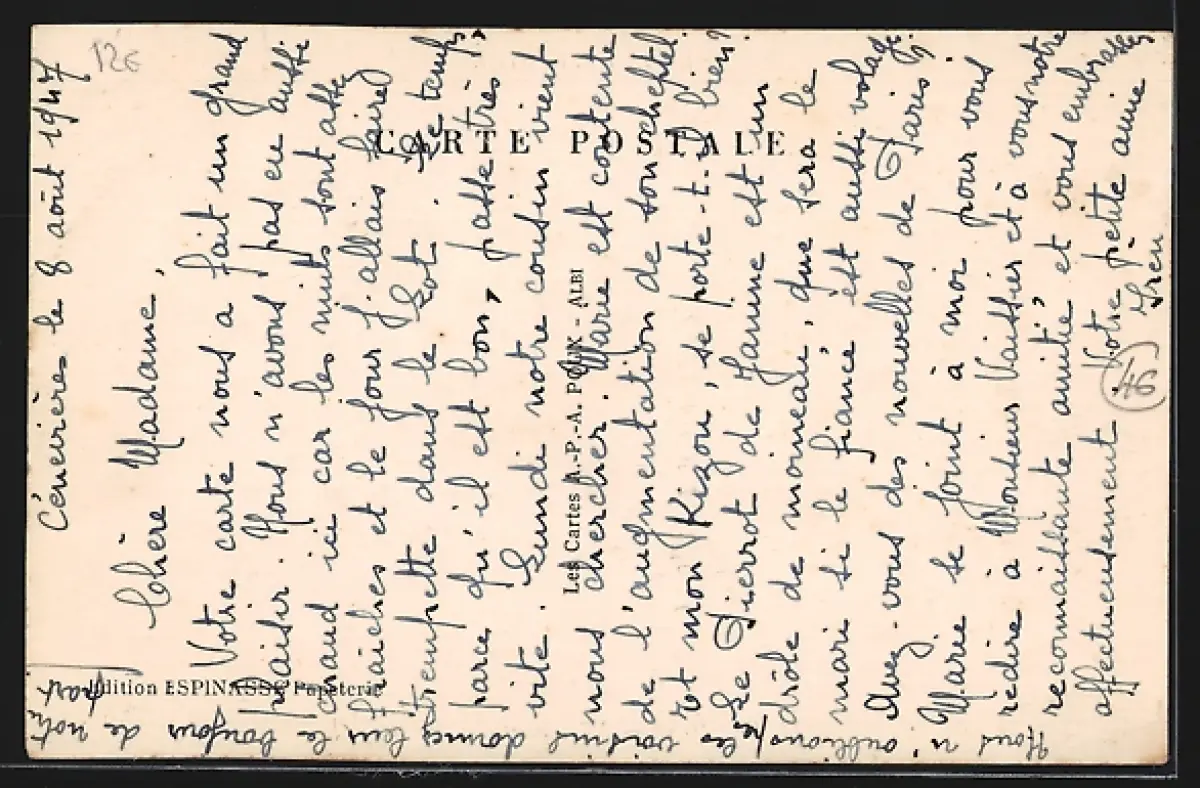 Cénevières le 8 août 1947
Chère Madame,
Votre carte nous a fait un grand
plaisir. Nous n'avons pas eu aussi
chaud ici car les nuits sont assez
fraiches et le jour j'allais faire
trempette dans le Lot. Le temps,
parce qu'il est bon, passe très
vite. Lundi notre cousin vient
nous chercher. Marie est contente
de l'augmentation de son cheptel
et mon Kizou, se porte-t-il bien?
Le Pierrot de Jeanne est un
drôle de moineau, que sera le
mari si le fiancé est aussi volage.
Avez-vous des nouvelles de Paris?
Marie se joint à moi pour vous
redire à Monsieur Vaissier et à vous notre
reconnaissante amitié et vous embrasse
affectueusement. Votre petite amie
(46)
Nous n'oublions pas les voisins donnez leur le bonjour de notre
part
12€
CARTE POSTALE
Les Cartes A.P.-A. POUX - ALBI
Edition ESPINASSE Papeterie